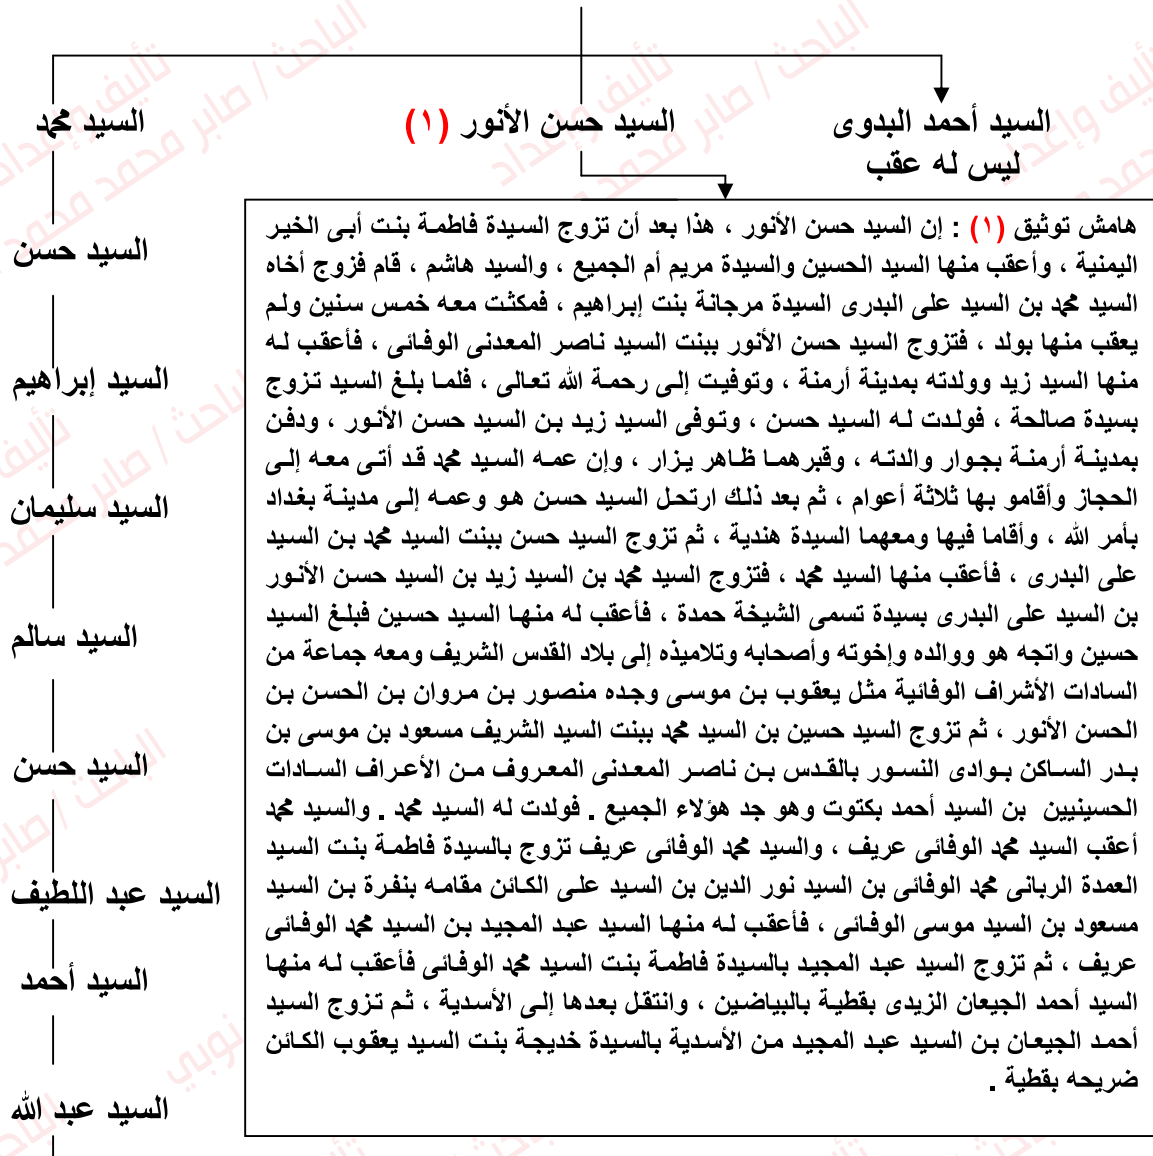 السيد أحمد البدوى
ليس له عقب
السيد حسن الأنور (١)
السيد محمد
السيد حسن
السيد إبراهيم
السيد سليمان
السيد سالم
السيد حسن
السيد عبد اللطيف
السيد أحمد
السيد عبد الله
هامش توثيق (١) : إن السيد حسن الأنور ، هذا بعد أن تزوج السيدة فاطمة بنت أبى الخير
اليمنية ، وأعقب منها السيد الحسين والسيدة مريم أم الجميع ، والسيد هاشم ، قام فزوج أخاه
السيد محمد بن السيد على البدرى السيدة مرجانة بنت إبراهيم ، فمكثت معه خمس سنين ولم
يعقب منها بولد ، فتزوج السيد حسن الأنور ببنت السيد ناصر المعدنى الوفائى ، فأعقب له
منها السيد زيد وولدته بمدينة أرمنة ، وتوفيت إلى رحمة الله تعالى ، فلما بلغ السيد تزوج
بسيدة صالحة ، فولدت له السيد حسن ، وتوفى السيد زيد بن السيد حسن الأنور ، ودفن
بمدينة أرمنة بجوار والدته ، وقبرهما ظاهر يزار ، وإن عمه السيد محمد قد أتى معه إلى
الحجاز وأقامو بها ثلاثة أعوام ، ثم بعد ذلك ارتحل السيد حسن هو وعمه إلى مدينة بغداد
بأمر الله ، وأقاما فيها ومعهما السيدة هندية ، ثم تزوج السيد حسن ببنت السيد محمد بن السيد
على البدرى ، فأعقب منها السيد محمد ، فتزوج السيد محمد بن السيد زيد بن السيد حسن الأنور
بن السيد على البدرى بسيدة تسمى الشيخة حمدة ، فأعقب له منها السيد حسين فبلغ السيد
حسين واتجه هو ووالده وإخوته وأصحابه وتلاميذه إلى بلاد القدس الشريف ومعه جماعة من
السادات الأشراف الوفائية مثل يعقوب بن موسى وجده منصور بن مروان بن الحسن بن
الحسن الأنور ، ثم تزوج السيد حسين بن السيد محمد ببنت السيد الشريف مسعود بن موسى بن
بدر الساكن بوادى النسور بالقدس بن ناصر المعدنى المعروف من الأعراف السادات
الحسينيين بن السيد أحمد بكتوت وهو جد هؤلاء الجميع . فولدت له السيد محمد . والسيد محمد
أعقب السيد محمد الوفائى عريف ، والسيد محمد الوفائى عريف تزوج بالسيدة فاطمة بنت السيد
العمدة الربانى محمد الوفائى بن السيد نور الدين بن السيد على الكائن مقامه بنفرة بن السيد
مسعود بن السيد موسى الوفائى ، فأعقب له منها السيد عبد المجيد بن السيد محمد الوفائى
عريف ، ثم تزوج السيد عبد المجيد بالسيدة فاطمة بنت السيد محمد الوفائى فأعقب له منها
السيد أحمد الجيعان الزيدى بقطية بالبياضين ، وانتقل بعدها إلى الأسدية ، ثم تزوج السيد
أحمد الجيعان بن السيد عبد المجيد من الأسدية بالسيدة خديجة بنت السيد يعقوب الكائن
ضريحه بقطية .